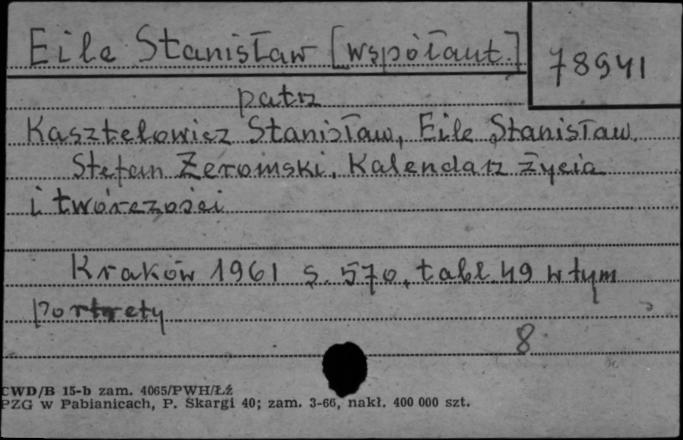 Eile Stanisław [współaut.]
78941
patrz
Kasztelowicz Stanisław, Eile Stanisław.
Stefan Żeromski. Kalendarz życia
i twórczości
Kraków 1961 s. 570, tabl. 49 w tym
portrety
8
CWD/B 15-b zam. 4065/PWH/Łź
PZG w Pabianicach, P. Skargi 40; zam. 3-66, nakł. 400 000 szt.